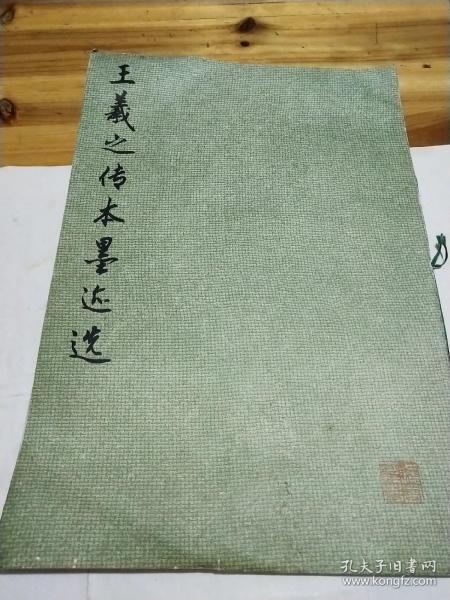 王羲之传本墨迹选
孔夫子旧书网
www.kongfz.com